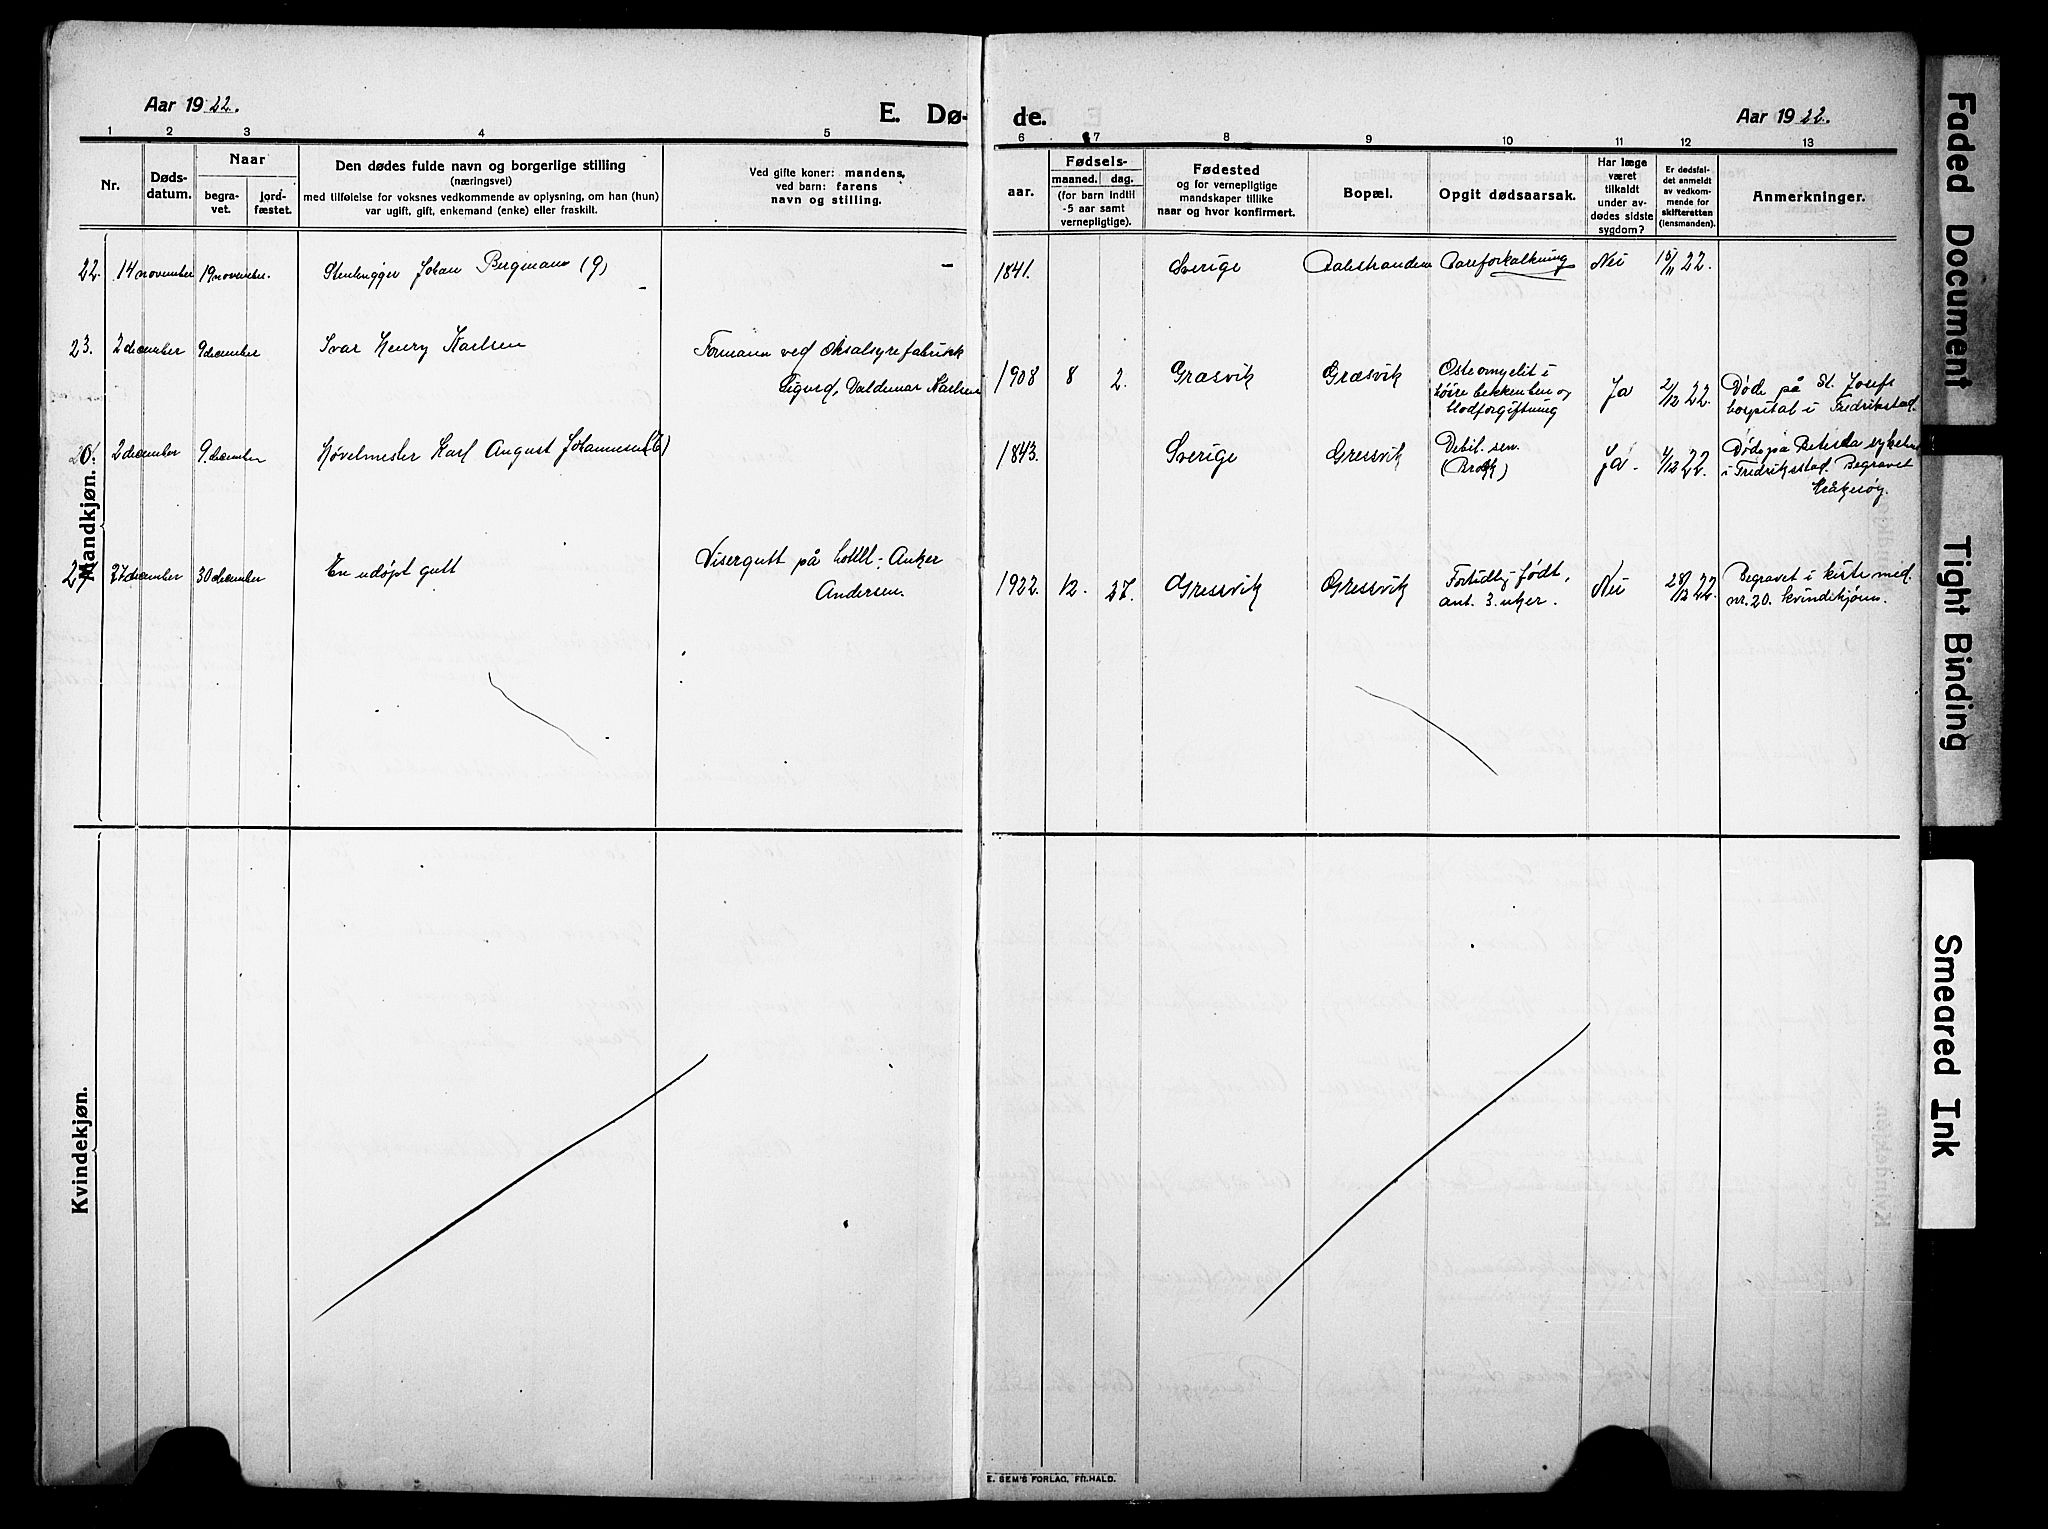 Aar 1922.
E. Dø-
de.
Aar 1922.
1 2 3 4 5 6 7 8 9 10 11 12 13
Nr.
Døds-
datum.
Naar
begra-
vet.
jord-
fæstet.
Den dødes fulde navn og borgerlige stilling
(næringsvei)
med tilføielse for voksnes vedkommende av oplysning, om han (hun)
var ugift, gift, enkemand (enke) eller fraskilt.
Ved gifte koner: mandens,
ved barn: farens
navn og stilling.
aar.
Fødsels-
maaned. dag.
(for barn indtil
-5 aar samt
vernepligtige).
Fødested
og for vernepligtige
mandskaper tillike
naar og hvor konfirmert.
Bopæl.
Opgit dødsaarsak.
Har læge
været
tilkaldt
under av-
dødes sidste
sygdom?
Er dødsfal-
det anmeldt
av vedkom-
mende for
skifteretten
(lensmanden).
Anmerkninger.
22. 14 november 19 november. Johan Bergmann (g) - 1841. Sverige Aalestranden Aareforkalkning Nei 15/11 22.
23. 2 december 9 december Ivar Henry Karlsen Formann ved Oksalsyrefabrikk
Sigurd, Valdemar Karlsen
1908 8 2. Græsvik Græsvik Osteomyelit i
høire bekkenben og
blodforgiftning
Ja 2/12 22. Døde på St. Josefs
hospital i Fredrikstad.
2 december 9. december Høvelmester Karl August Johannesen (E) 1843. Sverige Gressvik Debil. sen.
(Brokk)
Ja. 4/12 22. Døde på Betesda sykehus
i Fredriksstad. Begravet
Kråkerøy.
27 december 30 december En udøpt gutt Visergutt på hotell: Anker
Andersen.
1922. 12. 27. Gressvik Gressvik Fortidlig født,
ant. 3. uker.
Nei 28/12 22. Begravet i kiste med
nr. 20. kvindekjøn.
Mandkjøn.
Kvindekjøn.
E. SEM'S FORLAG, FR.HALD.
Faded Document
Tight Binding
Smeared Ink